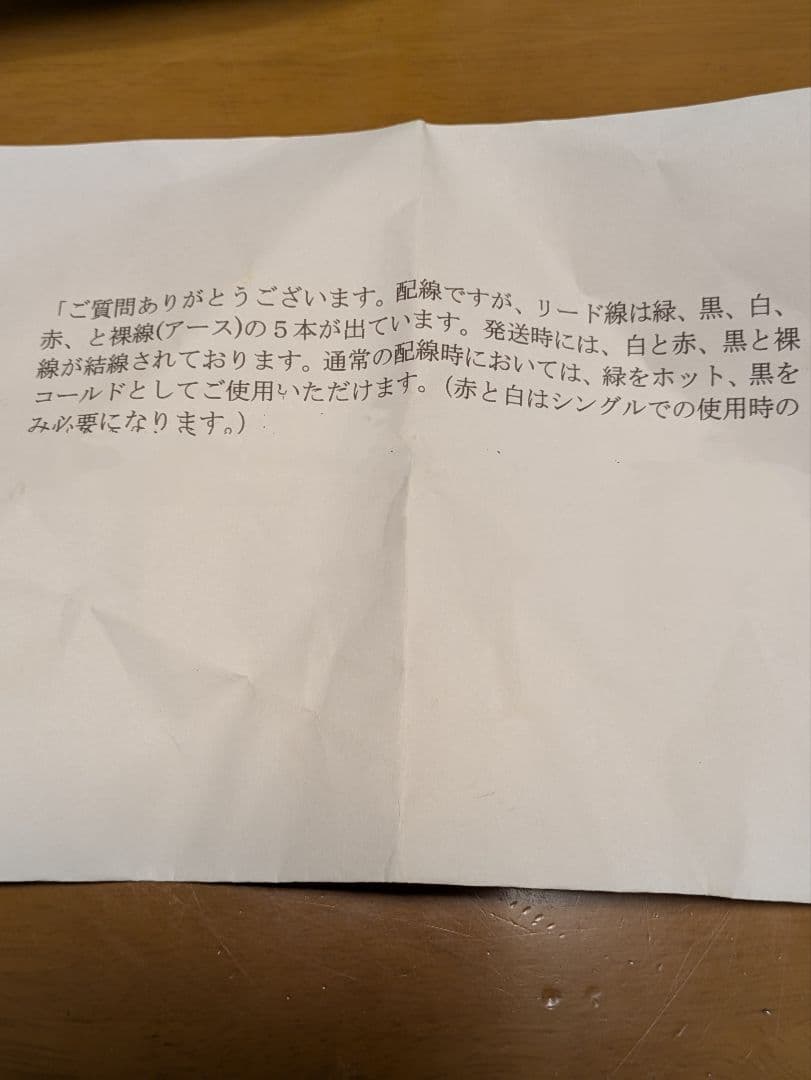 「ご質問ありがとうございます。配線ですが、リード線は緑、黒、白、
赤、と裸線(アース)の５本が出ています。発送時には、白と赤、黒と裸
線が結線されております。通常の配線時においては、緑をホット、黒を
コールドとしてご使用いただけます。（赤と白はシングルでの使用時の
み必要になります。）